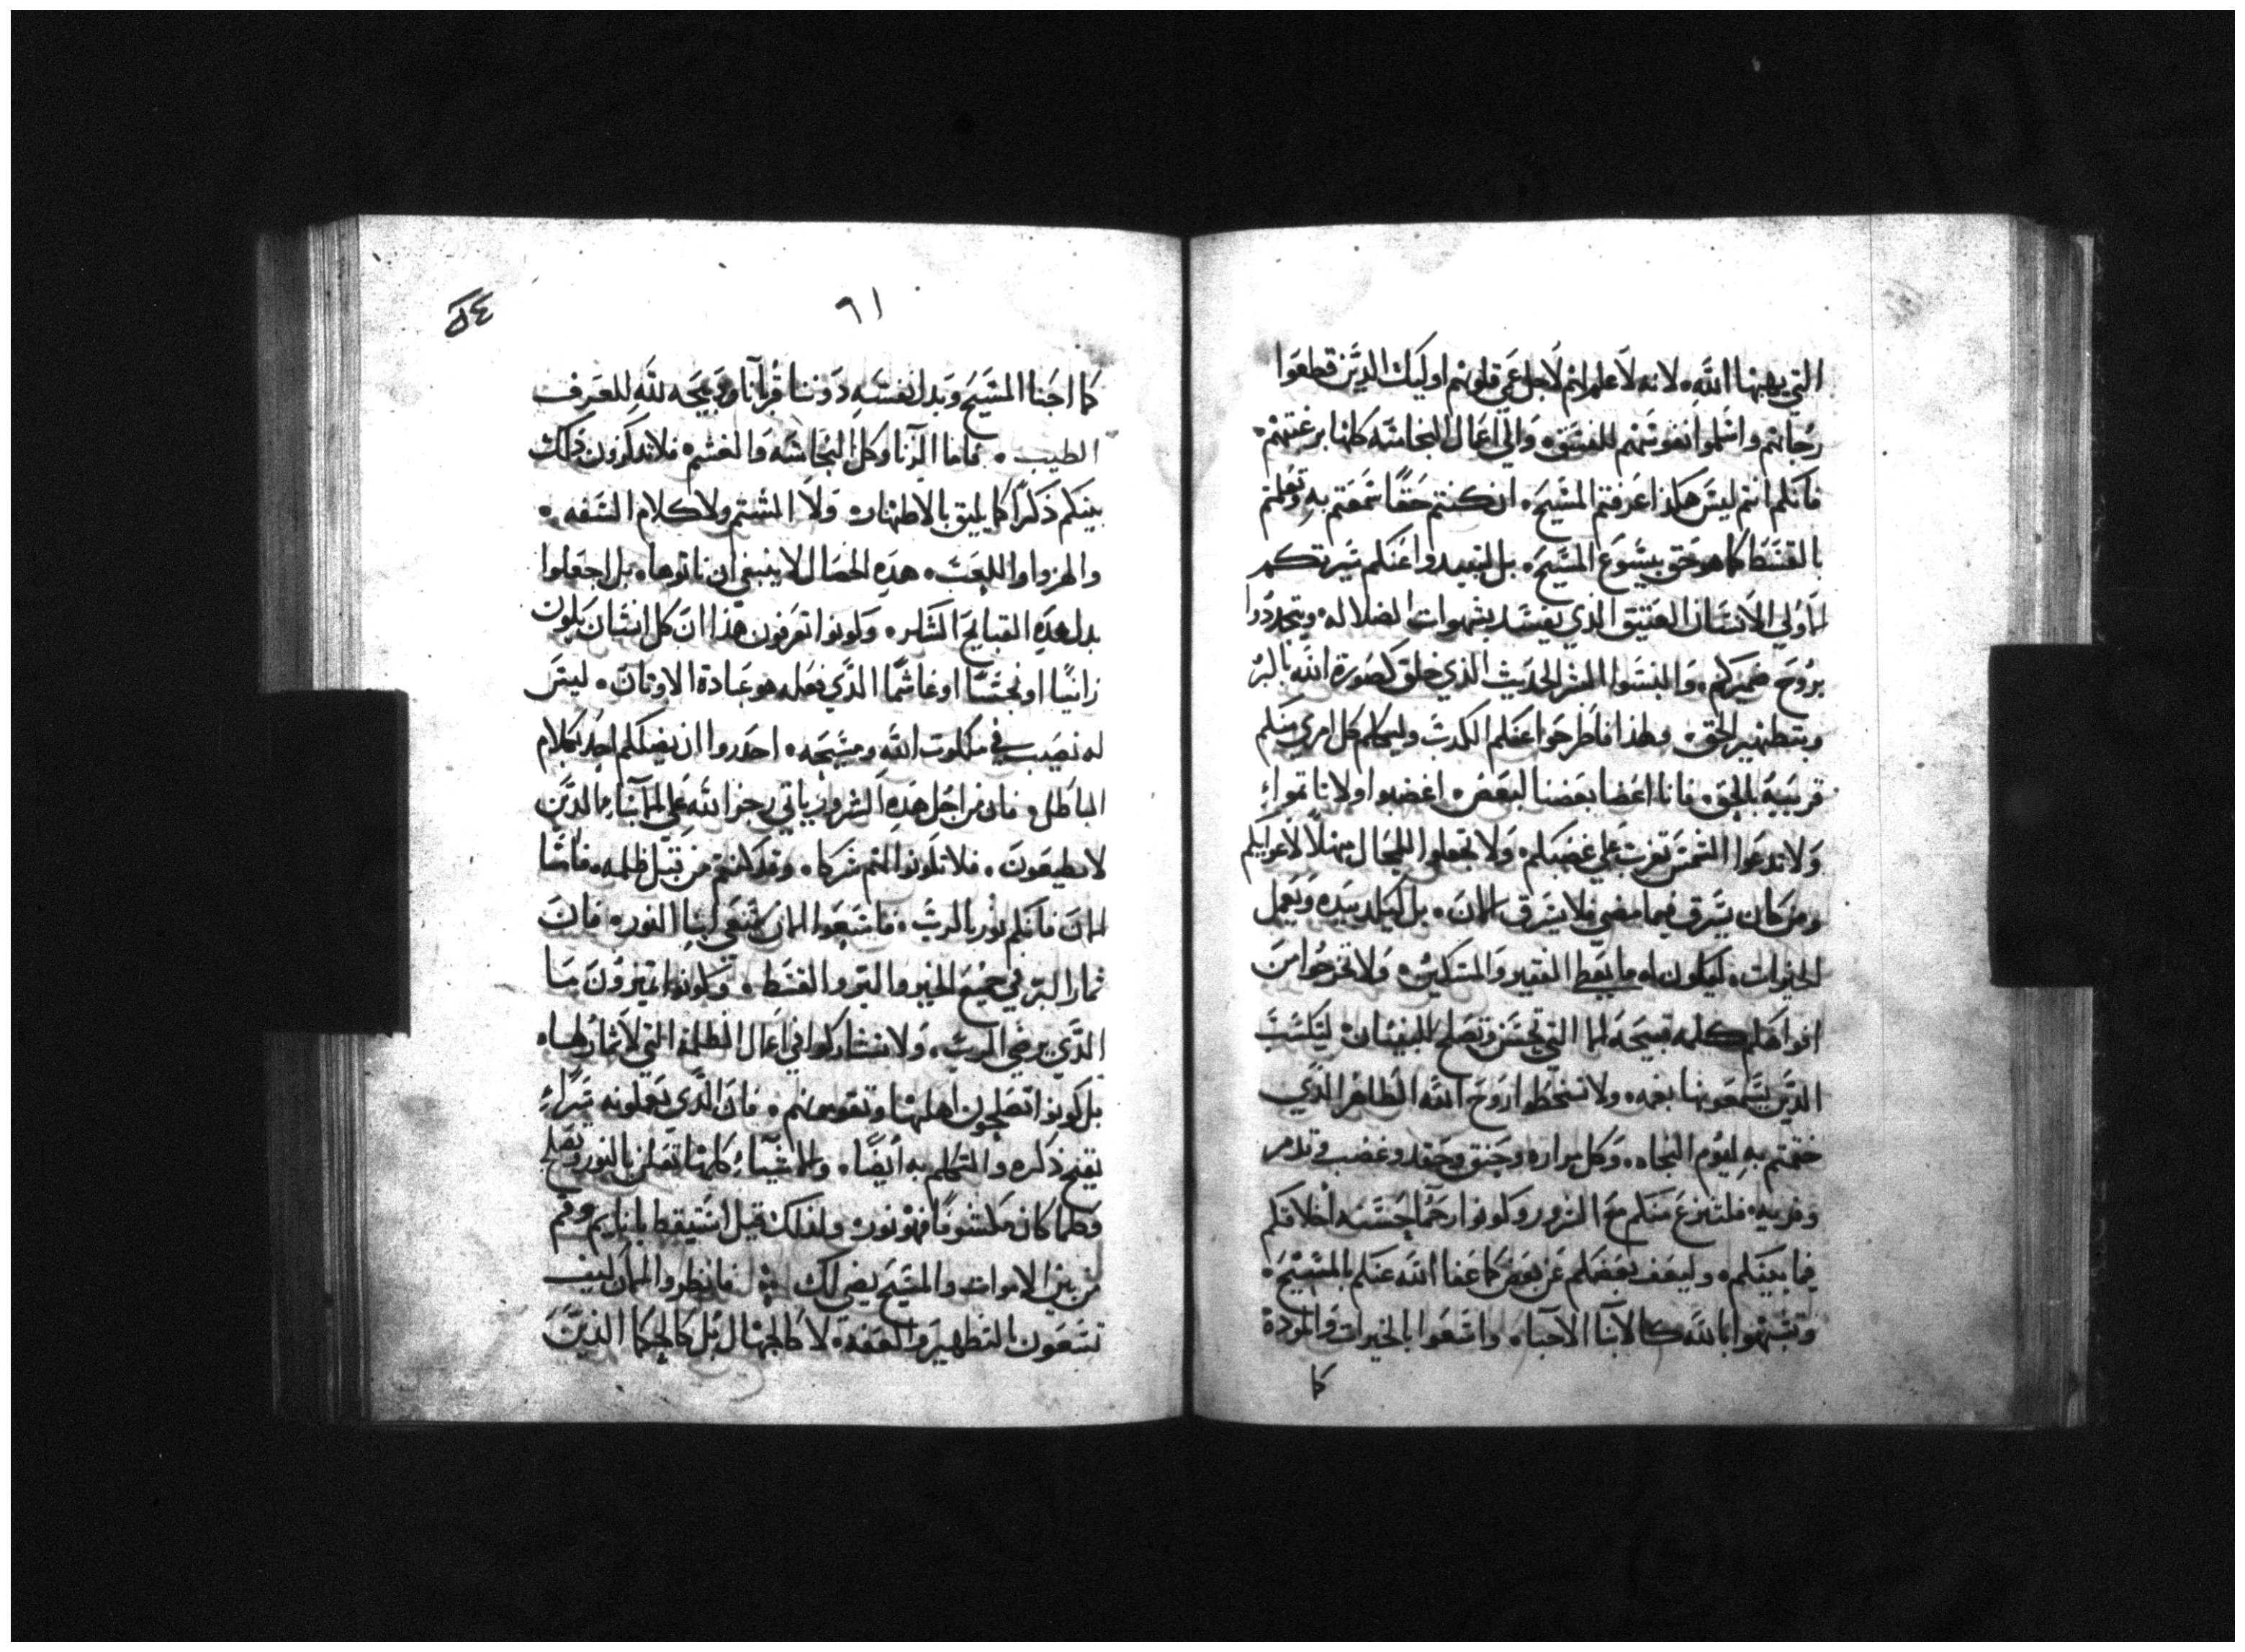 التي يهبها الله. لانه لا علم لهم لاجل عمي قلوبهم اوليك الذين قطعوا
رجاتهم واسلموا نفوسهم للفسق. والي اعمال النجاسه كلها برغبتهم.
فانكم انتم ليس هكذا عرفتم المسيح. ان كنتم حقًا سمعتم به وتعلمتم
بالقسط كما هو حق بيسوع المسيح. بل لتبعدوا عنكم سيرتكم
الاولي الانسان العتيق الذي يفسد بشهوات الضلاله. وتجددوا
بروح ضميركم. والبسوا البشر الحديث الذي خلق كصورة الله بالبر
وبتطهير الحق. ولهذا فاطرحوا عنكم الكدب وليكلم كل امري منكم
قريبه بالحق. فاننا اعضا بعضنا لبعض. اغضبوا ولا تاتموا.
ولا تدعوا الشمس تغرب علي غضبكم. ولا تجعلوا للمحال مهلًا لاغوايكم
ومن كان يسرق فيما مضي فلا يسرق الان. بل ليكد بيده ويعمل
الخيرات. ليكون له ما يعطي الفقير والمسكين. ولا تخرجوا من
افواهكم كلمه قبيحه الا التي تحسن وتصلح للبنيان ليكسب
الذين يسمعونها نعمه. ولا تسخطوا روح الله الطاهر الذي
ختمتم به ليوم النجاه. وكل مراره وحنق وحقد وغضب وتدمر
وفريه فلتنزع منكم مع الشرور وكونوا رحمًا حسنه اخلاقكم
فيما بينكم. وليعف بعضكم عن بعض كما عفا الله عنكم بالمسيح.
وتشبهوا بالله كالابنا الاحبا. واسعوا بالخيرات والموده
كما
٦١
٥٤
كما احبنا المسيح وبدل نفسه دوننا قربانًا ودبيحه لله للعرف
الطيب. فاما الزنا وكل النجاسه والغشم. فلا تدكرون ذلك
بينكم ذكرًا كما يليق بالاطهار. ولا الشتم ولا كلام السفه.
والهزوا واللعب. هذه الخصال لا ينبغي ان تاتوها. بل اجعلوا
بدل هذه القبايح الشكر. وكونوا تعرفون هذا ان كل انسان يكون
زانيًا او نجسًا او غاشمًا الذي فعله هو عبادة الاوتان. ليس
له نصيب في ملكوت الله ومسيحه. احدروا ان يضلكم احد بكلام
الباطل. فان من اجل هذه الشرور ياتي رجز الله علي الابناء الذين
لا يطيعون. فلا تكونوا لهم شركا. وقد كنتم من قبل ظلمه. فاما
الان فانكم نور بالرب. فاسعوا الان كسعي ابنا النور. فان
تمار البر في جميع الخير والبر والقسط. وكونوا تميزون ما
الذي يرضي الرب. ولا تشاركوا في اعمال الظلمه التي لا تمار لها.
بل كونوا تصلحون اهلها وتقومونهم. فان الذي يعملونه سرًا.
يقبح ذكره والتكلم به ايضًا. والاشياء كلها تعلن بالنور وتصلح
وكلما كان مكشوفًا فهو نور. ولذلك قيل استيقظ يا نايم وقم
من بين الاموات والمسيح يضي لك فانظروا الان كيف
تسعون بالتطهير والعفه. لا كالجهال بل كالحكما الذين